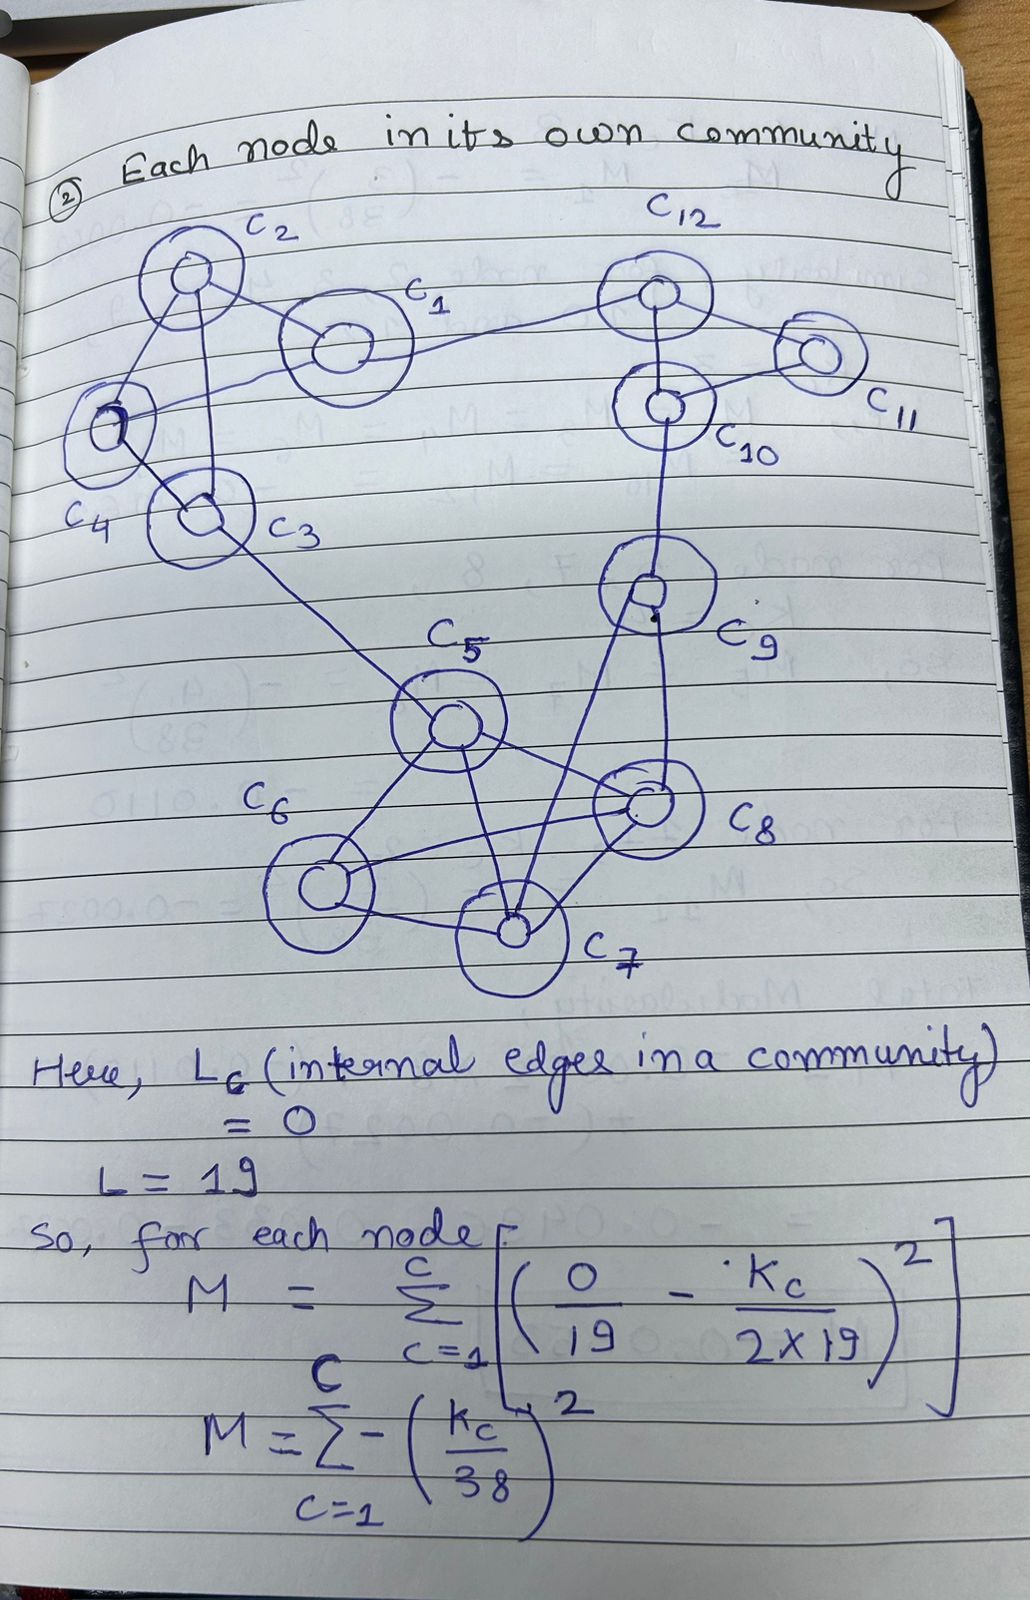 ② Each node in its own community
C2
C12
C1
C11
C10
C4
C3
C9
C5
C6
C8
C7
Here, Lc (internal edges in a community)
= 0
L = 19
So, for each node :
M = C Σ c=1 [ ( 0/19 - kc/2×19 )² ]
M = C Σ c=1 - ( kc/38 )²